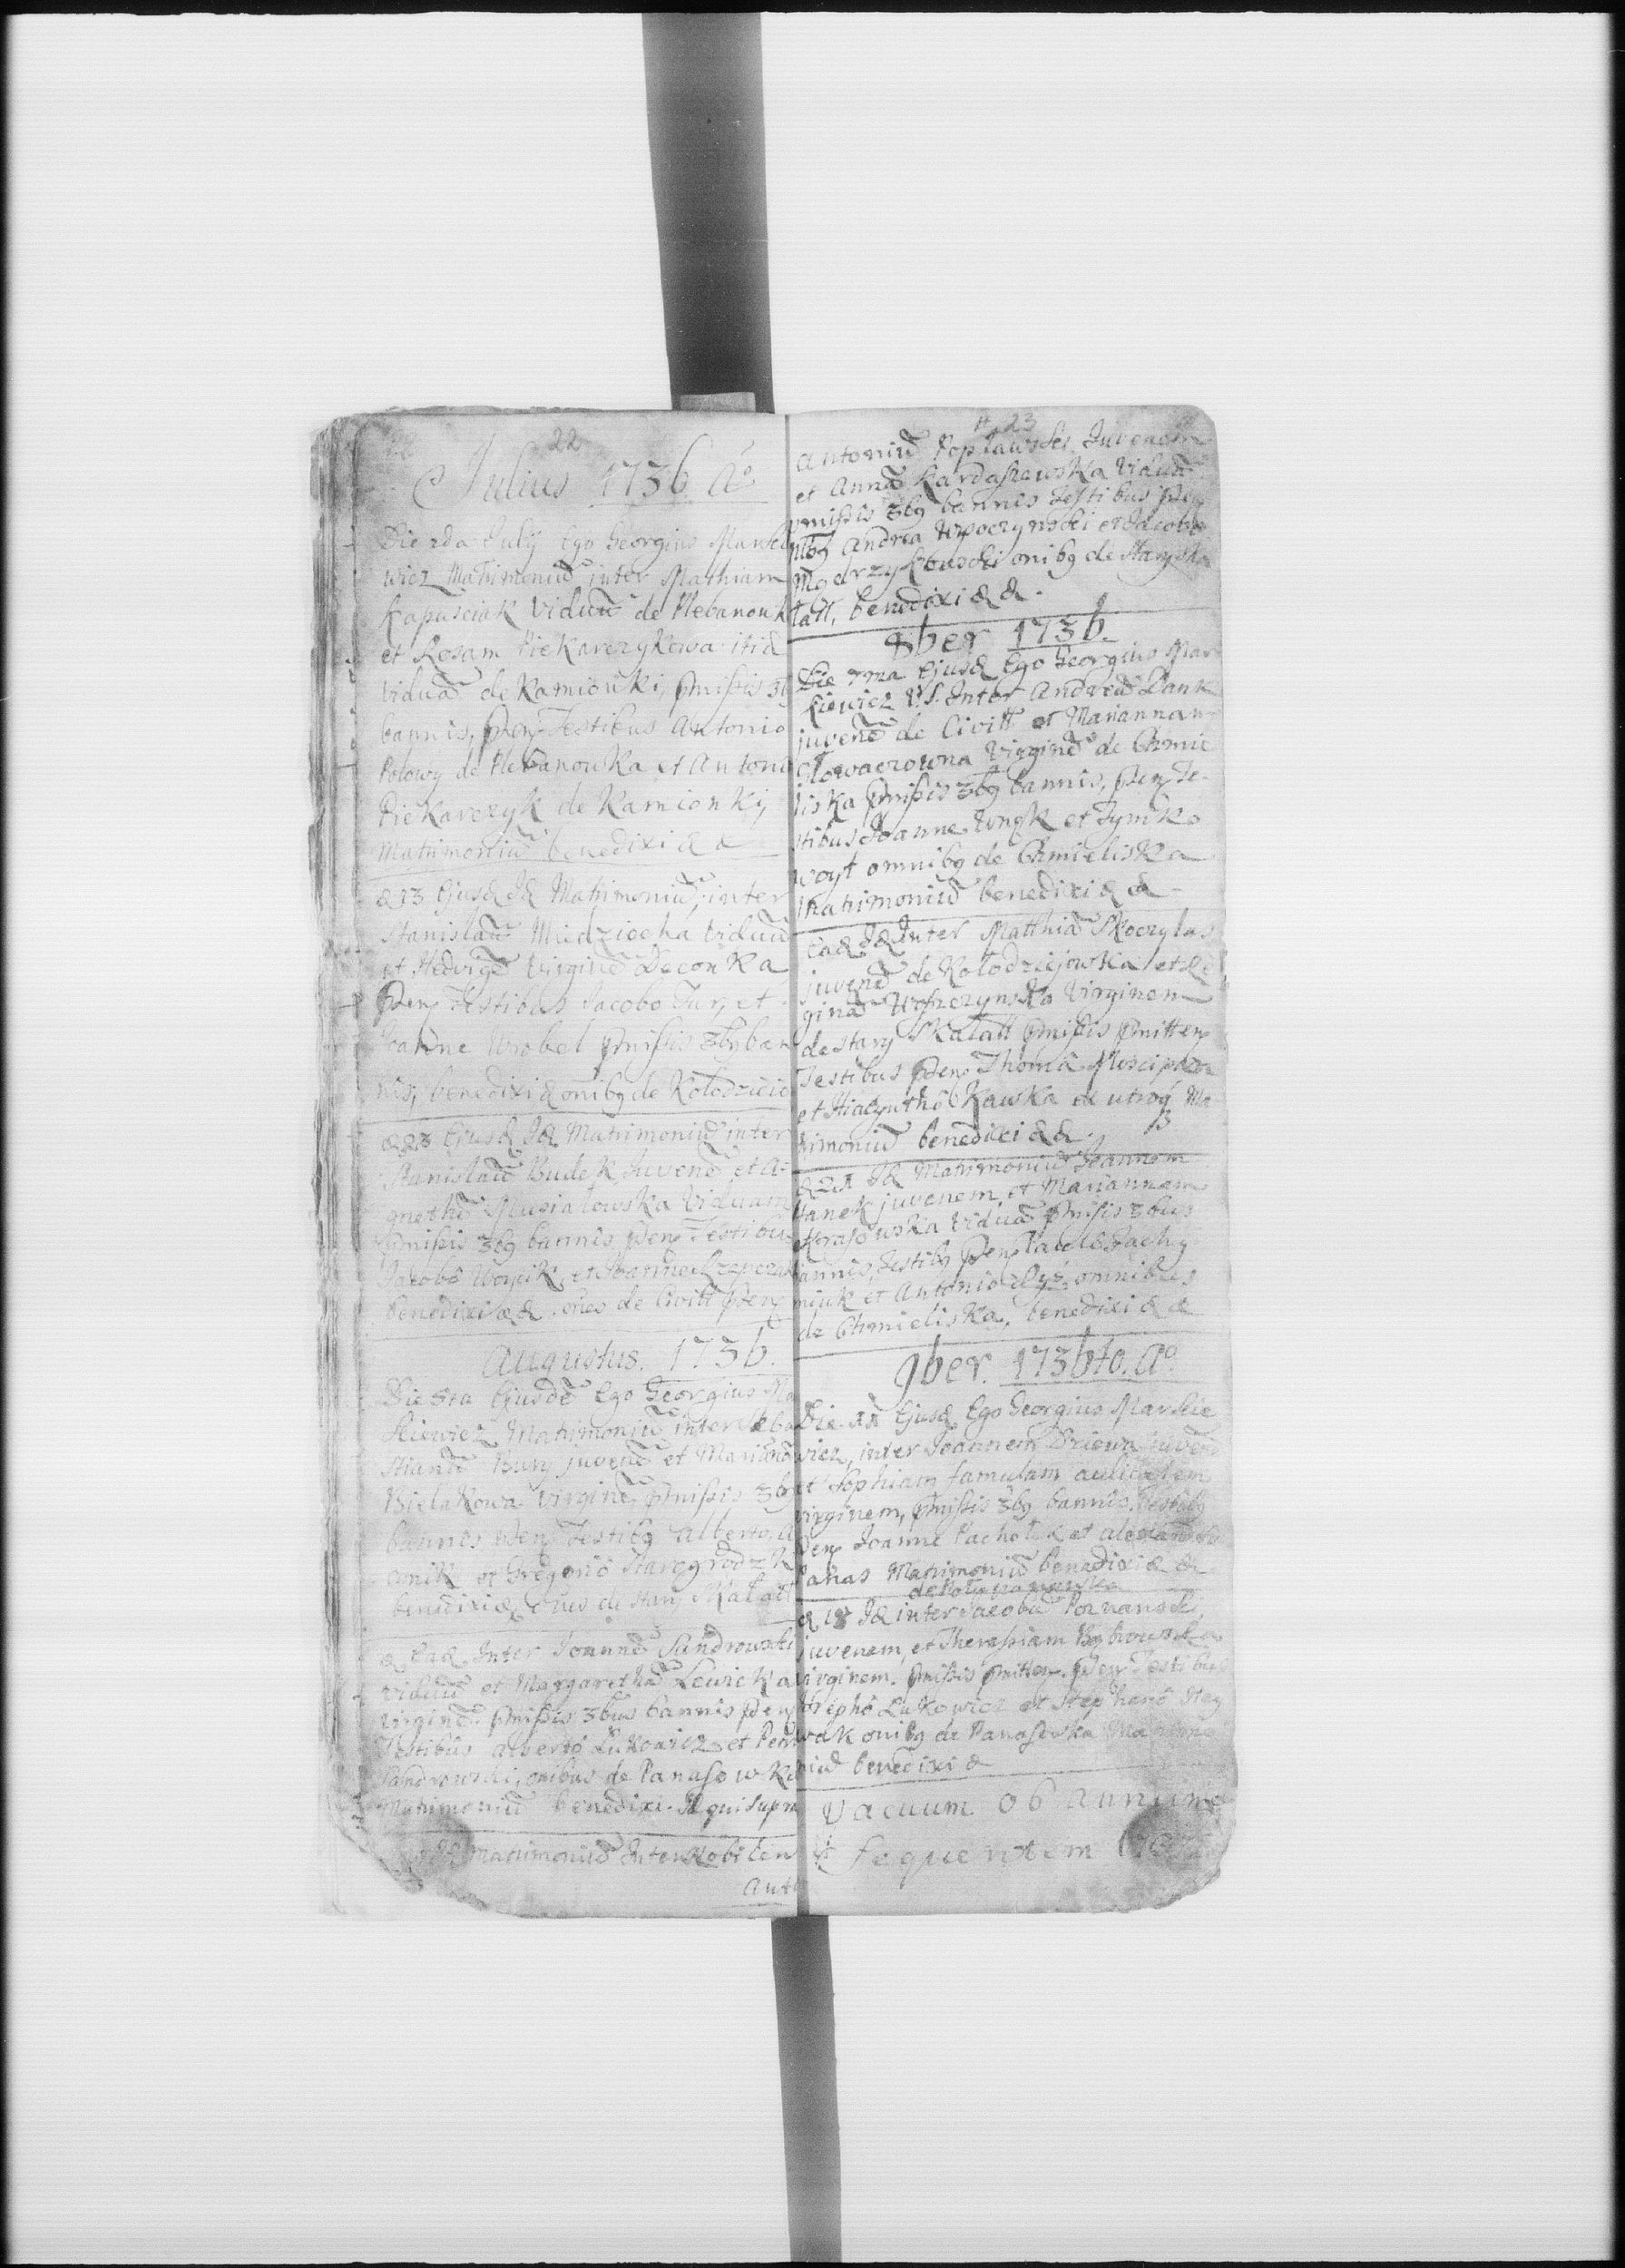 22
Julius 1736 Aº
Die 2da Julij Ego Georgius Marsele
wicz Matrimoniũ inter Mathiam
Kapusciak Viduũ de Plebanowk
et Rosam Piekarczykowa itid
viduã de Kamionki, pmissis 3bȝ
bannis, pden Testibus Antonio
Polowy de Plebanowka et Antonio
Piekarczyk de Kamionki,
Matrimoniũ benedixi & &
& 23 Ejusd Id Matrimoniũ, inter
Stanislaũ Miedziocha Viduũ
et Hedvigẽ Virginẽ Deconka
pden Testibus Jacobo Tur, et
Joanne Wrobel pmissis 3bȝ ban
nis, benedixi & onibȝ de Kołodzieio
& 23 Ejusd Id Matrimoniũ inter
Stanislaũ Budek Juvenẽ et A-
gnethã Musiałowska Viduam
pmissis 3bȝ bannis pden Testibu
Jacobô Woycik, et Joanne Krzepczuk
benedixi & & ões de Civitt pden
Augustus. 1736.
Die 5ta Ejusdẽ Ego Georgius Ma
skiewicz Matrimoniũ inter Seba
stianũ Bury juvenẽ et Mariãnã
Bielakowa Virginẽ, pmissis 3bȝ
bannis pden Testibȝ Alberto
et Gregoriô Starogrodzk
benedixi & ões de Stary Skałatt
& Ead Inter Joannẽ Sandrowski
Viduũ et Margarethã Lewicka
Virginẽ pmissis 3bus bannis pden
Testibus Albertô Lukowicz et Petro
Sandrowski, onibus de Panasowka
Matrimoniũ benedixi Id qui supra
Id Matrimoniũ Inter Nobilem
Anto
23
Antoniũ Popławski Juvenem
et Annã Kardaszewska Viduã
pmissis 3bȝ bannis Testibus pden
Nbȝ Andrea Wpoczynski et Jacobo
Modrzykowski onibȝ de Stary Ska
łatt, benedixi & &.
8ber 1736.
Die 7ma Ejusd Ego Georgius Mar
kiewicz V.S. Inter Andreã Pank
juvenẽ de Civitt et Mariannam
Głowaczowna Virginẽ de Chmie
liska pmissis 3bȝ bannis, pden Te-
stibus Joanne Wnęk et Tymko
Woyt omnibȝ de Chmieliska
Matrimoniũ benedixi & &
Ead Id Inter Matthiã Skoczylas
juvenẽ de Kołodziejowka et Re
ginã Woszczynska Virginem
de Stary Skałatt pmissis pmitten
Testibus pden Thoma Mosciptan
et Hiacynthô Kawka de utroq Ma-
trimoniũ benedixi & &.
& 21 Id Matrimoniũ Joannem
Hanek juvenem et Mariannam
Krasowska Viduã pmissis 3bus
bannis, Testibȝ pden Paulo Stachy
niuk et Antonio Dyś omnibus
de Chmieliska, benedixi & &
9ber. 1736to. Aº
Die 11 Ejusd Ego Georgius Markie
wicz, inter Joannem Dziewa juvenẽ
et Sophiam famulam aulicalem
virginem, pmissis 3bȝ bannis Testibȝ
pden Joanne Pachołek et Alexandro
Panas Matrimoniũ benedixi & &
& 18 Id inter Jacobũ Poznanski
juvenem, et Theressiam Bobrowska
virginem. pmissis pmitten. pden Testibus
Josephô Lukowicz et Stephanô Ney
wak onibȝ de Panasowka Matrimo
niũ benedixi &
Vacuum ob annum
sequentem